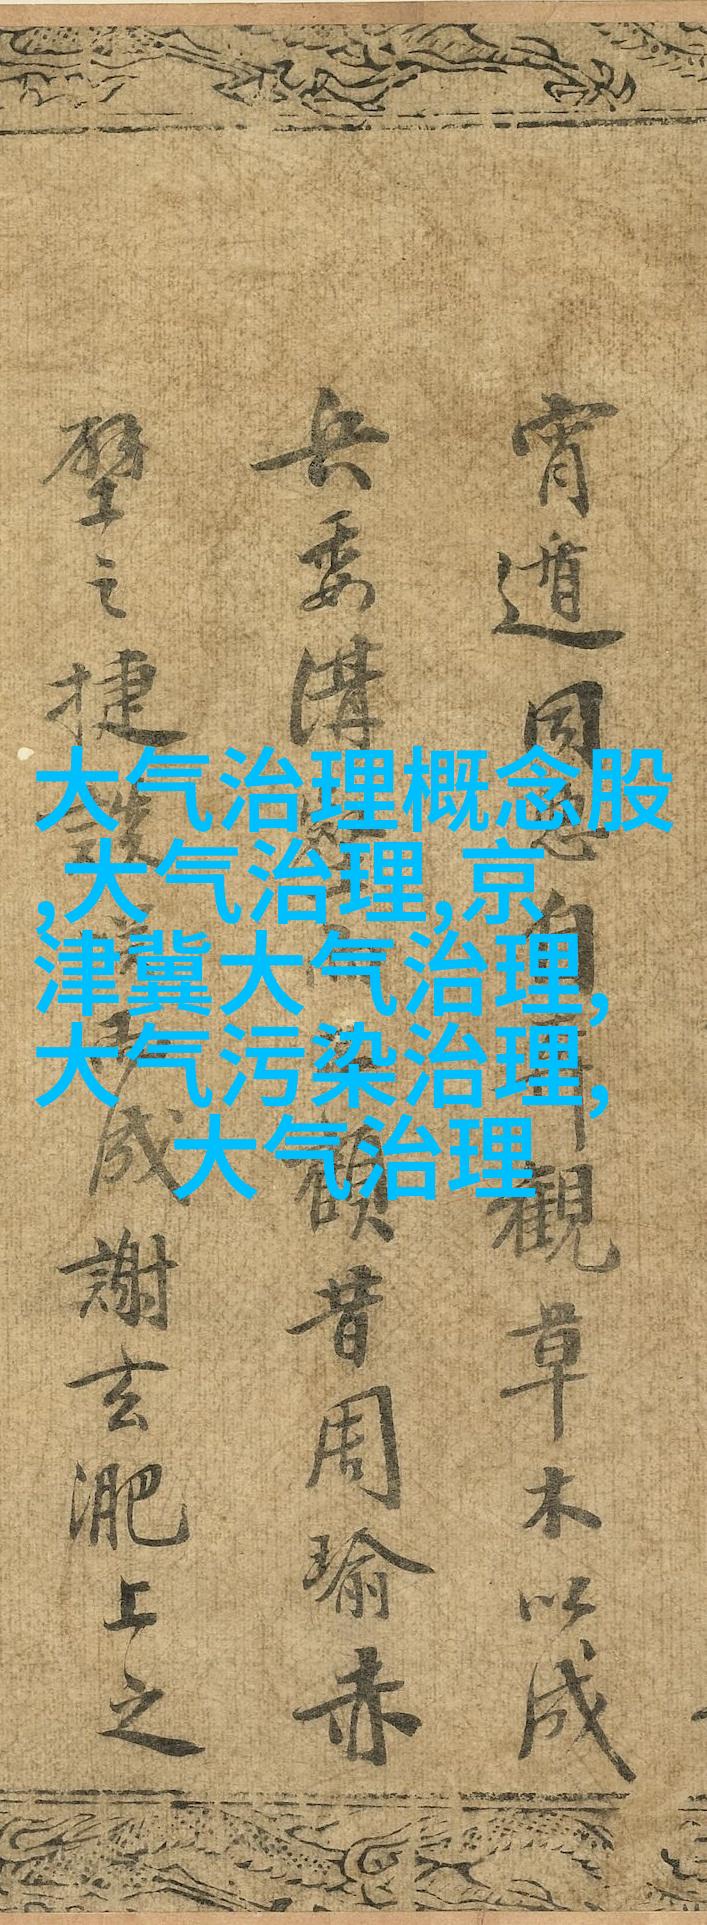 宵遁自觀草木以成
兵委溝昔周瑜赤
壁之捷成謝玄淝上之
大气治理概念股
,大气治理,京
津冀大气治理,
大气污染治理,
大气治理